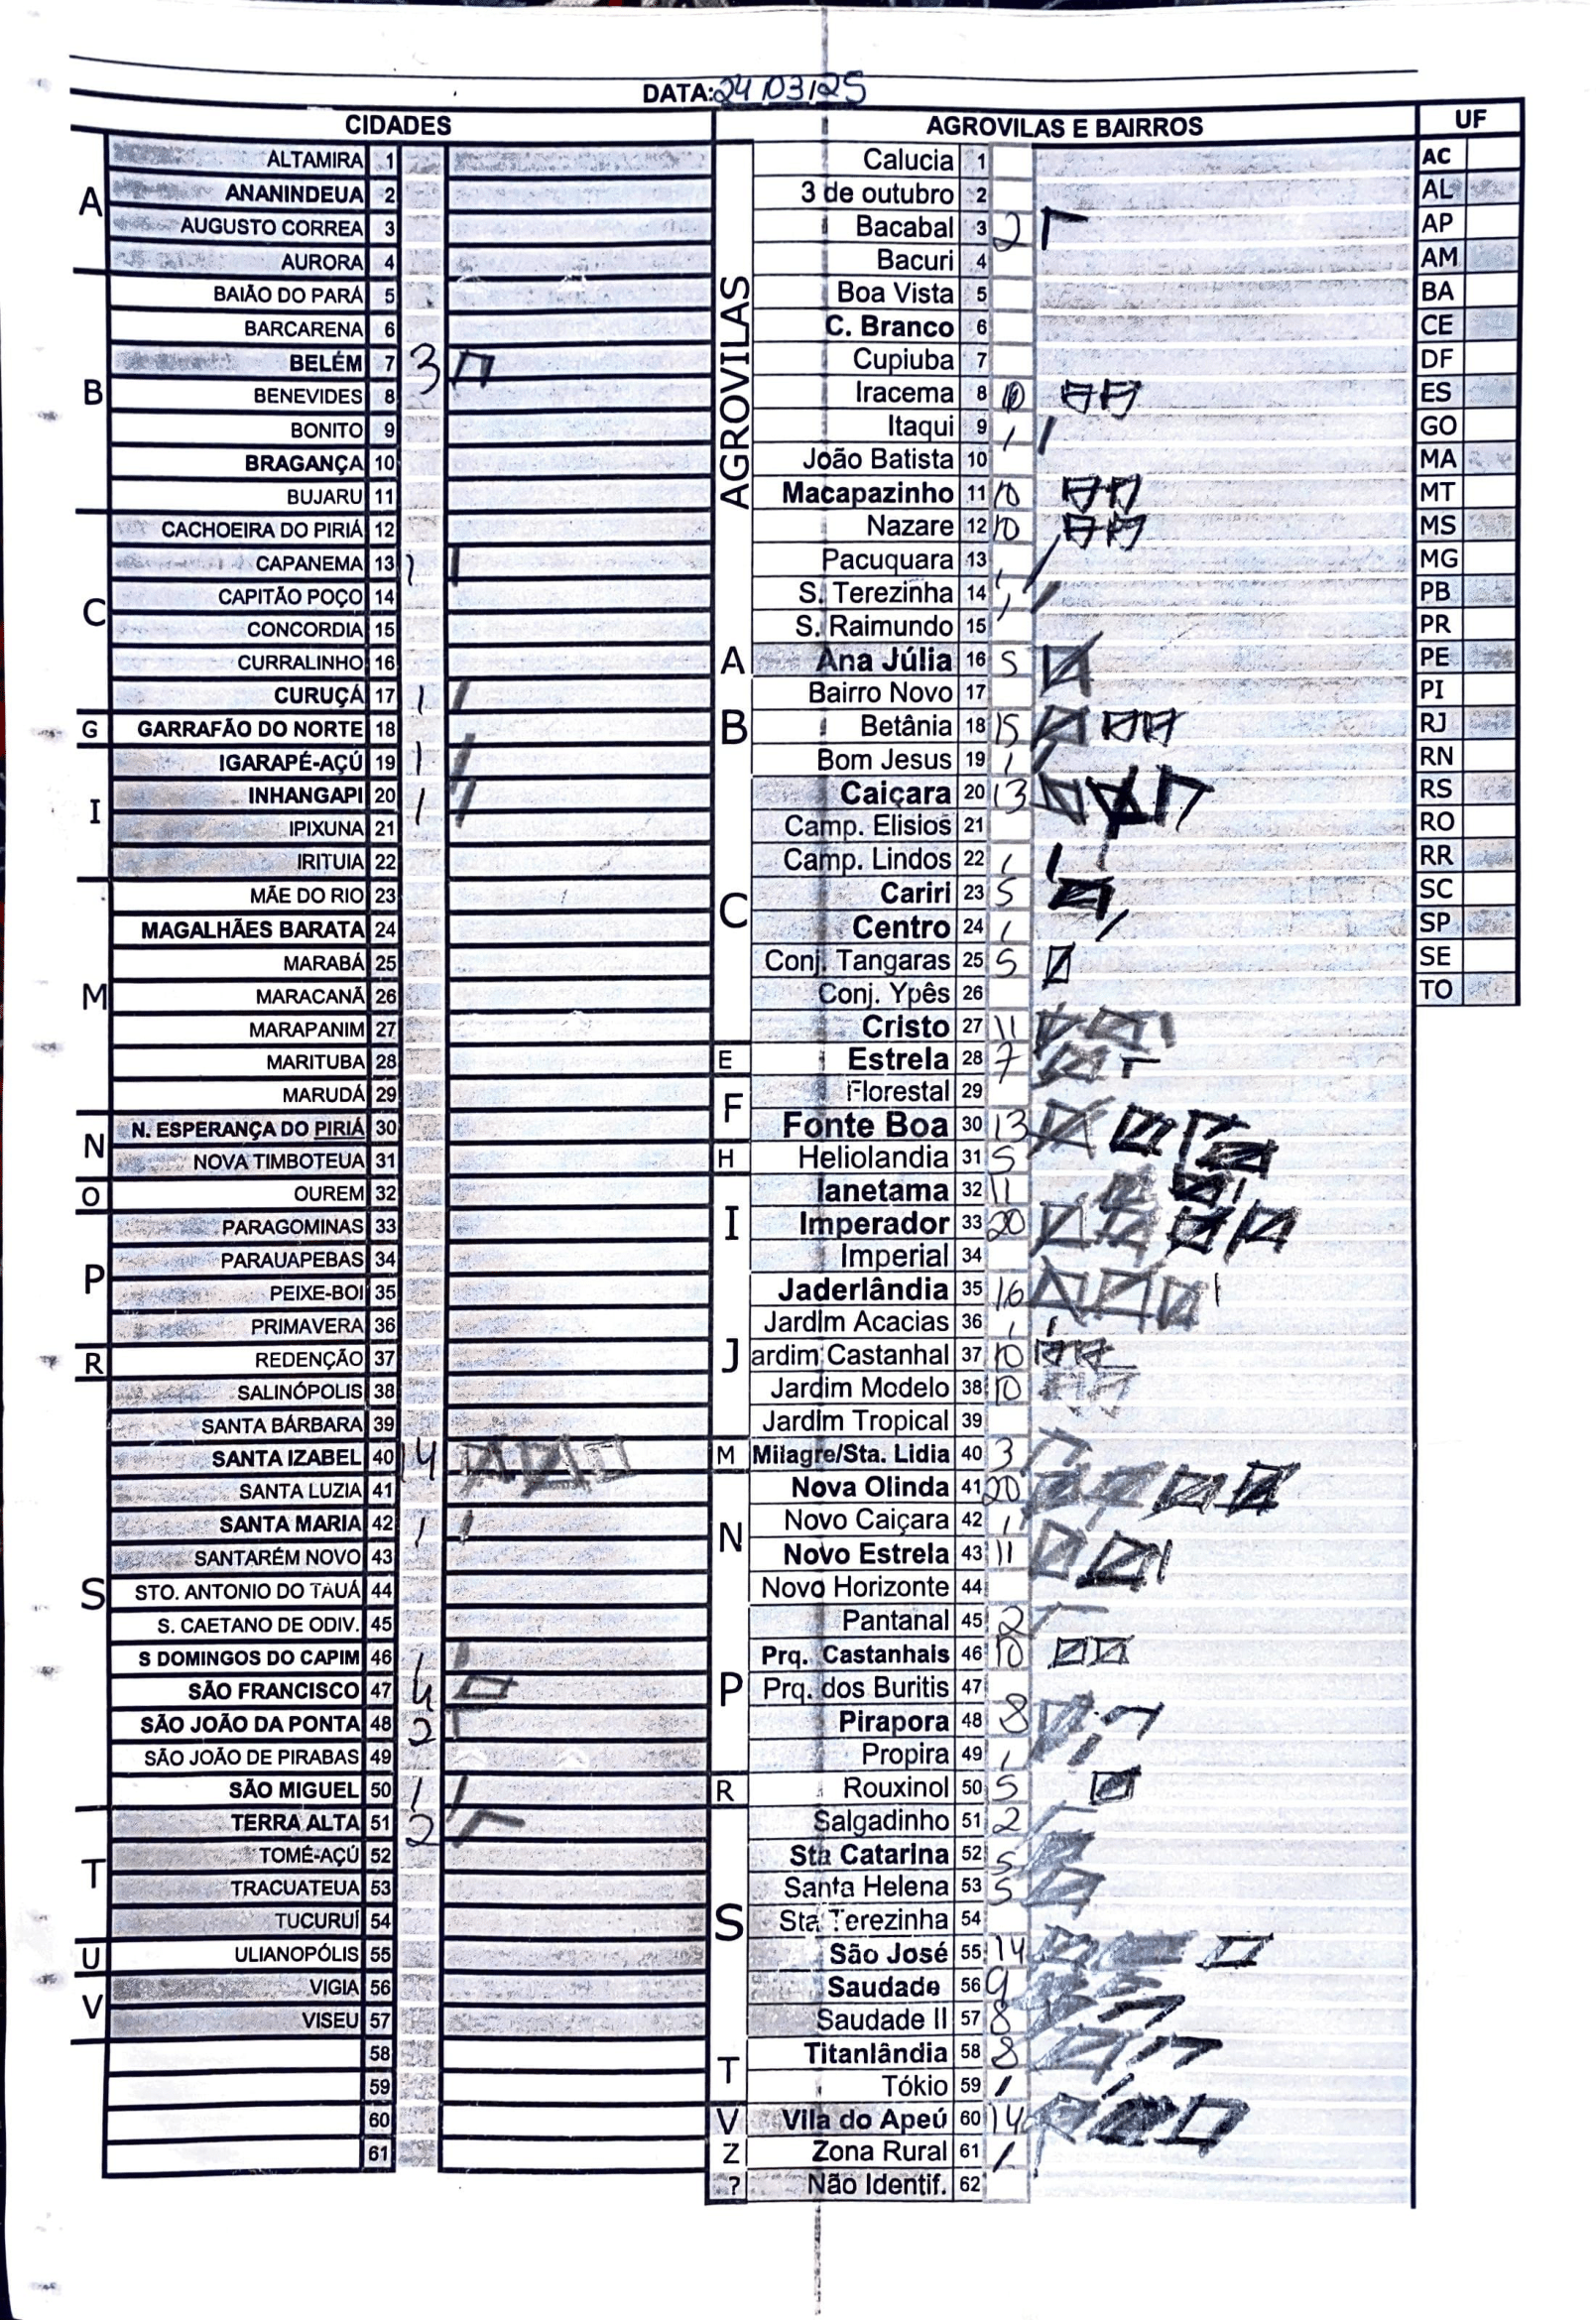 DATA: 24/03/25
CIDADES
A
ALTAMIRA 1
ANANINDEUA 2
AUGUSTO CORREA 3
AURORA 4
B
BAIÃO DO PARÁ 5
BARCARENA 6
BELÉM 7 3
BENEVIDES 8
BONITO 9
BRAGANÇA 10
BUJARU 11
C
CACHOEIRA DO PIRIÁ 12
CAPANEMA 13 1
CAPITÃO POÇO 14
CONCORDIA 15
CURRALINHO 16
CURUÇÁ 17 1
G
GARRAFÃO DO NORTE 18
I
IGARAPÉ-AÇÚ 19 1
INHANGAPI 20 1
IPIXUNA 21
IRITUIA 22
M
MÃE DO RIO 23
MAGALHÃES BARATA 24
MARABÁ 25
MARACANÃ 26
MARAPANIM 27
MARITUBA 28
MARUDÁ 29
N
N. ESPERANÇA DO PIRIÁ 30
NOVA TIMBOTEUA 31
O
OUREM 32
P
PARAGOMINAS 33
PARAUAPEBAS 34
PEIXE-BOI 35
PRIMAVERA 36
R
REDENÇÃO 37
S
SALINÓPOLIS 38
SANTA BÁRBARA 39
SANTA IZABEL 40 14
SANTA LUZIA 41
SANTA MARIA 42 1
SANTARÉM NOVO 43
STO. ANTONIO DO TAUÁ 44
S. CAETANO DE ODIV. 45
S DOMINGOS DO CAPIM 46 1
SÃO FRANCISCO 47 4
SÃO JOÃO DA PONTA 48 2
SÃO JOÃO DE PIRABAS 49
SÃO MIGUEL 50 1
T
TERRA ALTA 51 2
TOMÉ-AÇÚ 52
TRACUATEUA 53
TUCURUÍ 54
U
ULIANOPÓLIS 55
V
VIGIA 56
VISEU 57
58
59
60
61
AGROVILAS E BAIRROS
AGROVILAS
Calucia 1
3 de outubro 2
Bacabal 3 2
Bacuri 4
Boa Vista 5
C. Branco 6
Cupiuba 7
Iracema 8 10
Itaqui 9 1
João Batista 10
Macapazinho 11 10
Nazare 12 10
Pacuquara 13 1
S. Terezinha 14 1
S. Raimundo 15
A
Ana Júlia 16 5
B
Bairro Novo 17
Betânia 18 15
Bom Jesus 19 1
C
Caiçara 20 13
Camp. Elisios 21
Camp. Lindos 22 1
Cariri 23 5
Centro 24 1
Conj. Tangaras 25 5
Conj. Ypês 26
Cristo 27 11
E
Estrela 28 7
F
Florestal 29
Fonte Boa 30 13
H
Heliolandia 31 5
I
Ianetama 32 11
Imperador 33 20
Imperial 34
J
Jaderlândia 35 16
Jardim Acacias 36 1
ardim Castanhal 37 10
Jardim Modelo 38 10
Jardim Tropical 39
M
Milagre/Sta. Lidia 40 3
N
Nova Olinda 41 20
Novo Caiçara 42 1
Novo Estrela 43 11
Novo Horizonte 44
P
Pantanal 45 2
Prq. Castanhais 46 10
Prq. dos Buritis 47
Pirapora 48 8
Propira 49 1
R
Rouxinol 50 5
S
Salgadinho 51 2
Sta Catarina 52 5
Santa Helena 53 5
Sta Terezinha 54
São José 55 14
Saudade 56 9
Saudade II 57 8
T
Titanlândia 58 8
Tókio 59 1
V
Vila do Apeú 60 14
Z
Zona Rural 61 1
?
Não Identif. 62
UF
AC
AL
AP
AM
BA
CE
DF
ES
GO
MA
MT
MS
MG
PB
PR
PE
PI
RJ
RN
RS
RO
RR
SC
SP
SE
TO